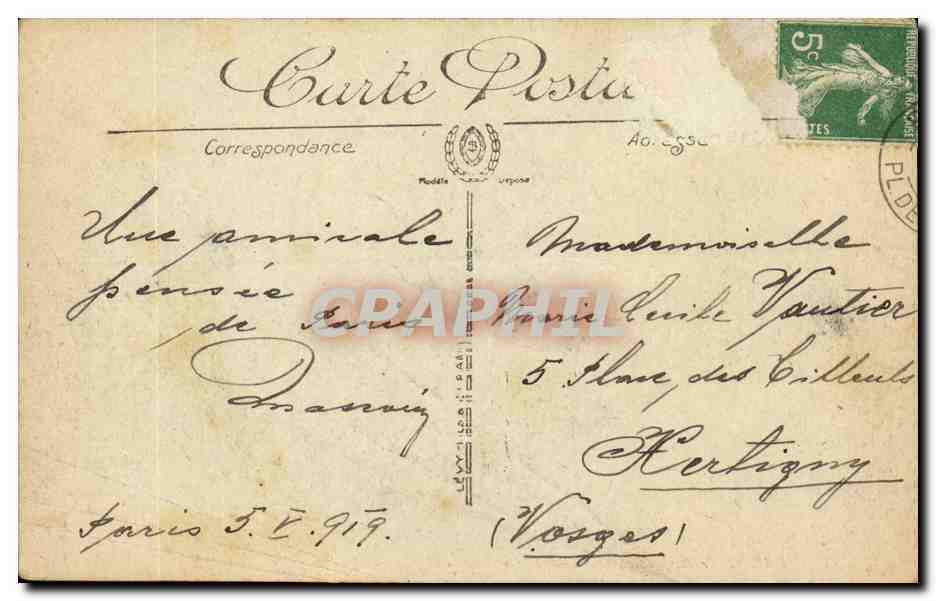 Carte Posta
Correspondance
Adresse
Modèle Déposé
5c
REPUBLIQUE FRANÇAISE
TES
PL. DE
Une amicale
pensée
de Paris
Paris 5.V.919.
Mademoiselle
Marie Cécile Vautier
5 Place des Tilleuls
Hertigny
(Vosges)
LÉVY FILS & Cie PARIS
CRAPHIL